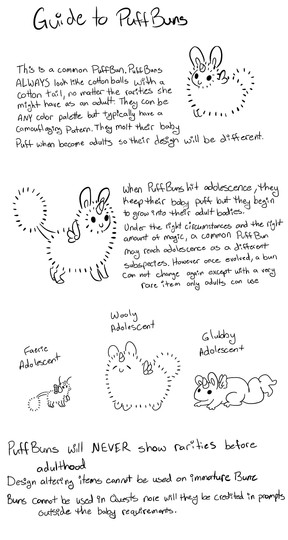 Guide to PuffBuns
This is a common PuffBun. PuffBuns
ALWAYS look like cottonballs with a
cotton tail, no matter the rarities she
might have as an adult. They can be
ANY color palette but typically have a
camouflaging Patern. They molt their baby
Puff when become adults so their design will be different.
When PuffBuns hit adolescence, they
Keep their baby puff but they begin
to grow into their adult bodies.
Under the right circumstances and the right
amount of magic, a common PuffBun
may reach adolescence as a different
subspecies. However once evolved, a bun
Can not change again except with a very
rare item only adults can use
Wooly
Adolescent
Faerie
Adolescent
Glubby
Adolescent
PuffBuns will NEVER show rarities before
adulthood
Design altering items cannot be used on immature Bunz
Buns cannot be used in Quests nore will they be credited in prompts
outside the baby requirements.